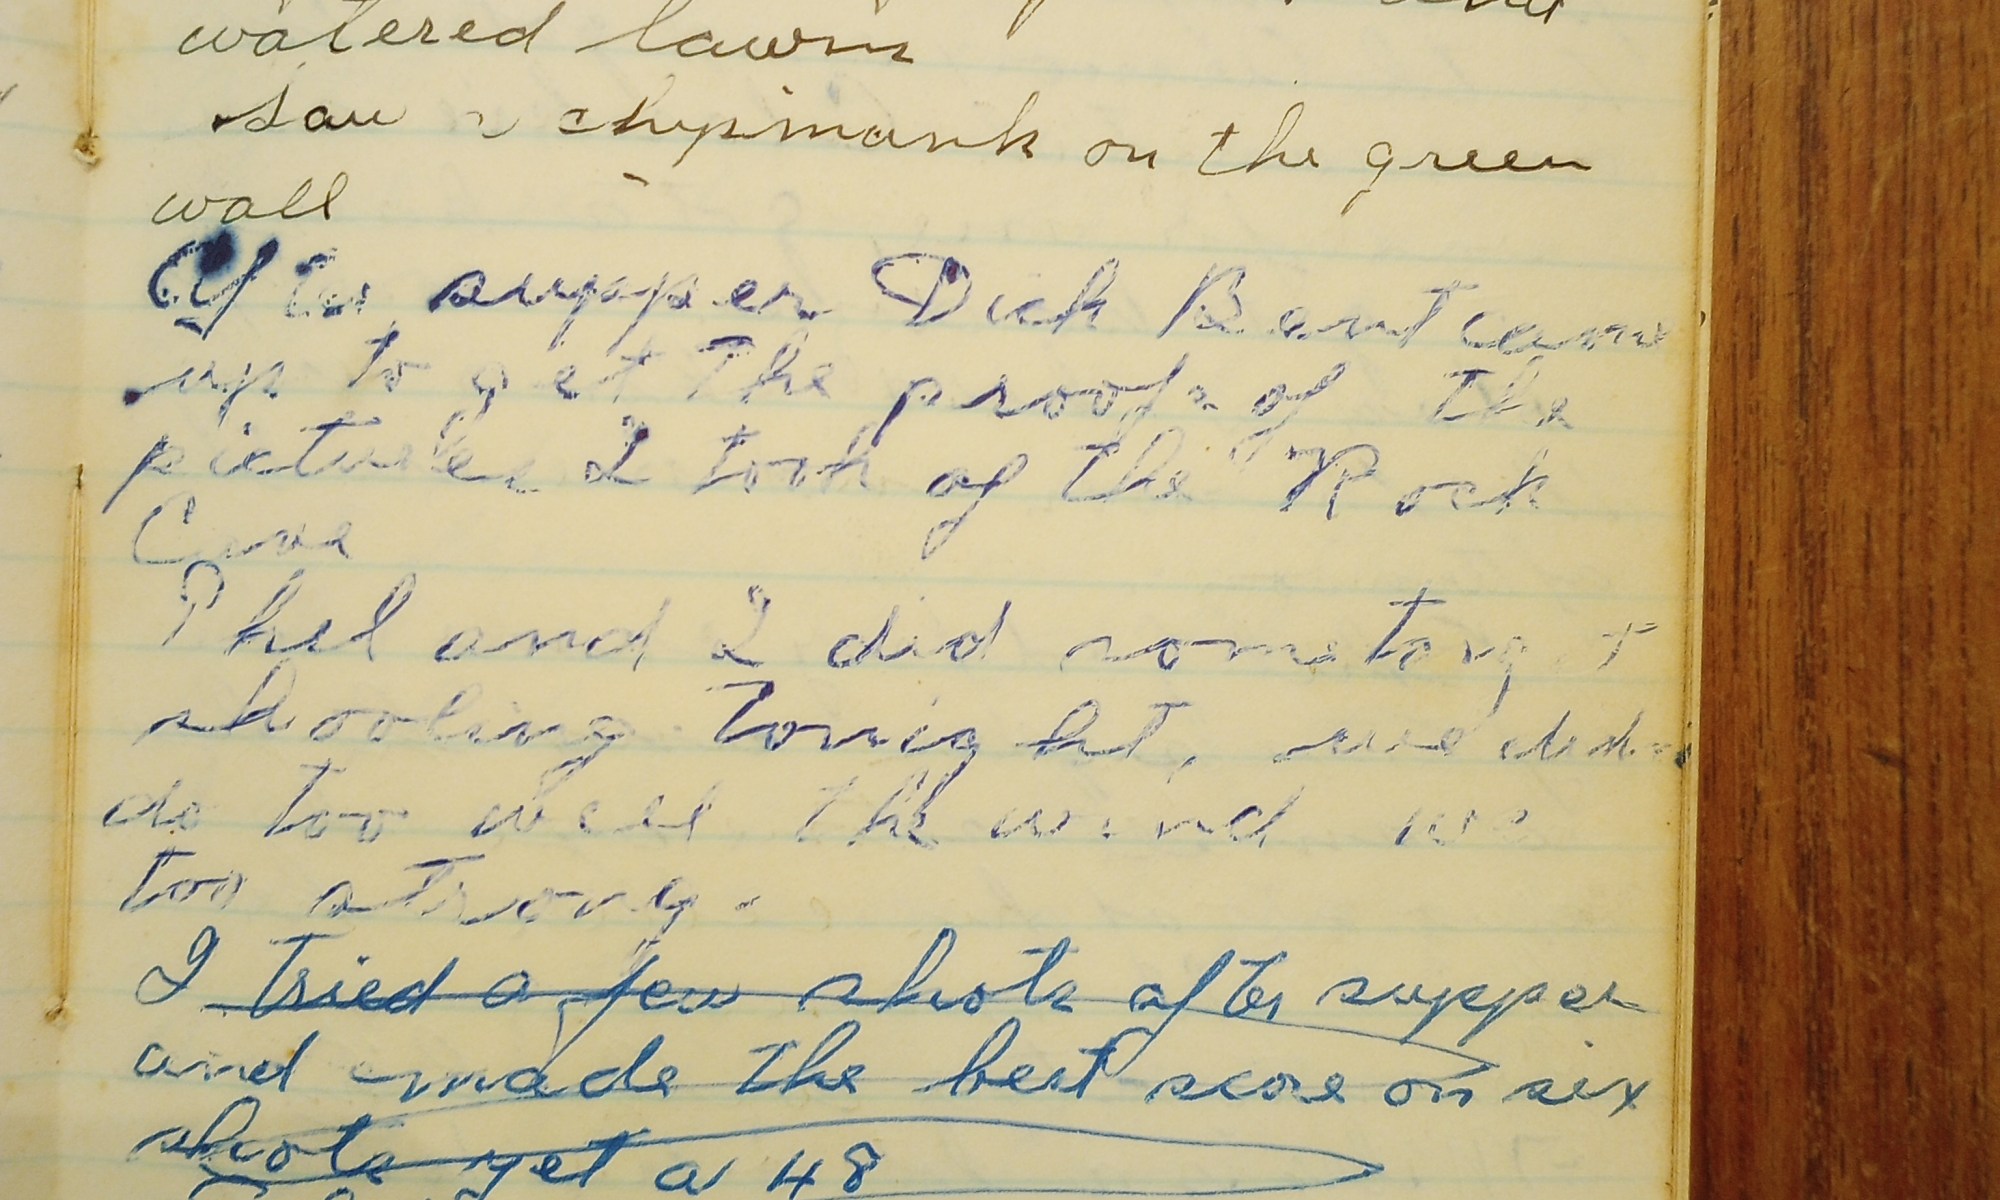 watered lawn
saw a chipmunk on the green
wall
After supper Dick Bent came
up to get the proofs of the
pictures I took of the "Rock
Cave
Phil and I did some targ +
shooting tonight, we didn
do too well the wind wa
too strong.
I tried a few shots after supper
and made the best score on six
shots yet a 48